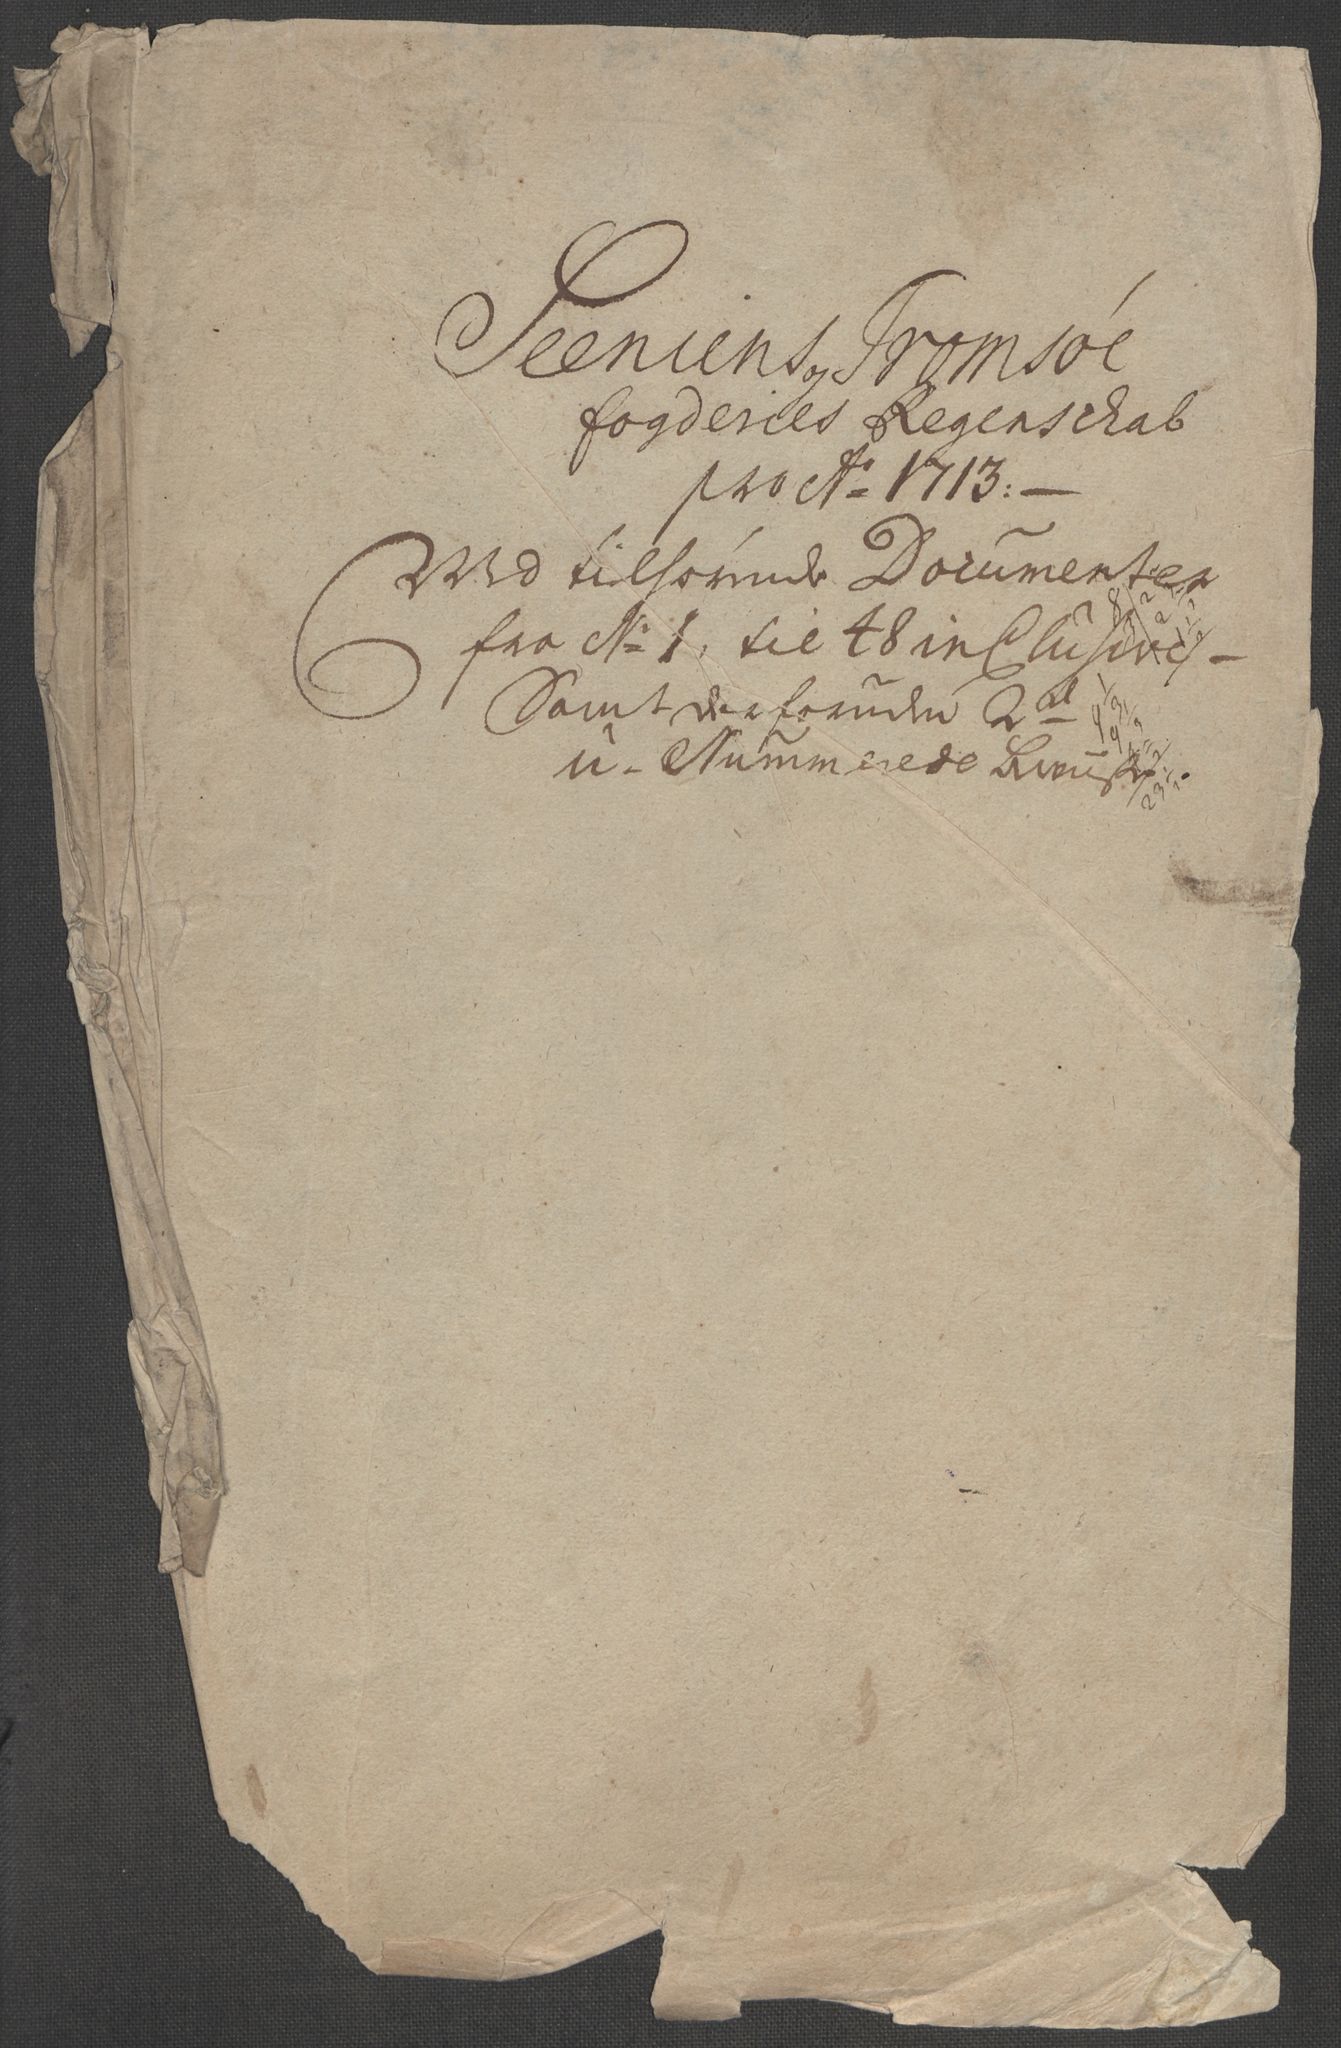 Seeniens og Tromsöe
fogderies Regenschab
pro Ao 1713:—
Med tilhörende Documenter
fra No 1. til 48 inClusive —
Samt der foruden 2de
u-Nummerede